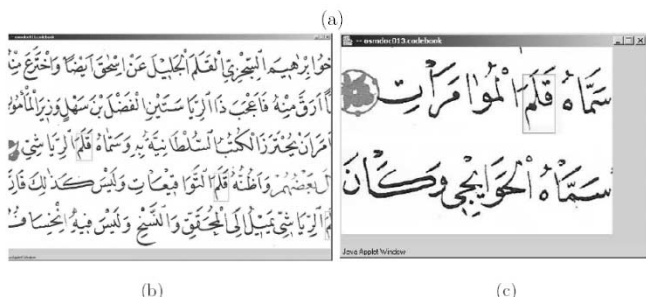 (a)
-- osmdoc013.codebook
خوا برهيم السجزي القلم الجليل عن اسحق ايضا واخترع
ارق منه فاعجب ذا الرياستين الفضل بن سهل وزير المأمو
امر ان الكتب السلطانية به وسماه قلم الرياشي
ل بعضهم واظنه قلم التواقيعات وليس كذلك فان
الرياشي يميل الى المحقق والنسخ وليس فيه انخساف
-- osmdoc013.codebook
سماه قلم المؤامرات
وسماه الحوايجي وكان
Java Applet Window
(b)
(c)